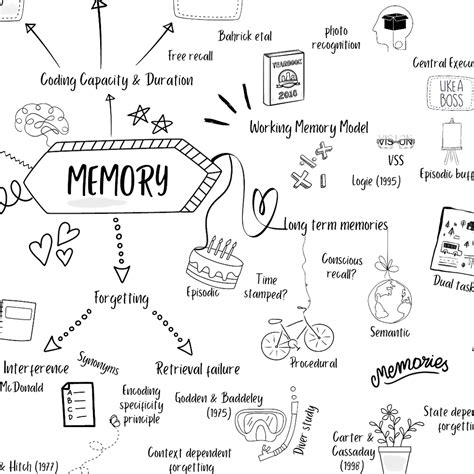 Bahrick etal
photo
recognition
Free recall
Central Execu
Coding Capacity & Duration
YEARBOOK
2016
LIKE A
BOSS
Working Memory Model
VISION
VSS
Logie (1995)
Episodic buff
MEMORY
Long term memories
Conscious
recall?
Time
stamped?
Episodic
Dual task
Forgetting
Semantic
Procedural
Synonyms
Interference
McDonald
Retrieval failure
MEMORiES
A
B
C
D
Encoding
specificity
principle
Godden & Baddeley
(1975)
Diver study
State depen
forgetting
Carter &
Cassaday
(1998)
Context dependent
forgetting
& Hitch (1977)